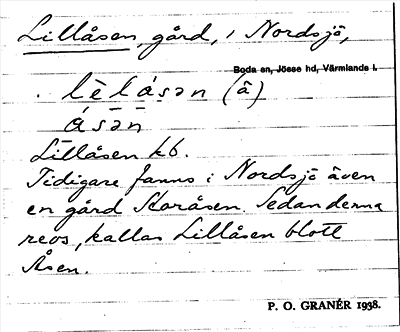 Lillåsen, gård, i Nordsjö,
Boda sn, Jösse hd, Värmlands l.
lèlá̱sən (â)
á̱sə̄n̄
Lillåsen kb.
Tidigare fanns i Nordsjö även
en gård Storåsen. Sedan denna
revs, kallas Lillåsen blott
Åsen.
P. O. GRANÉR 1938.